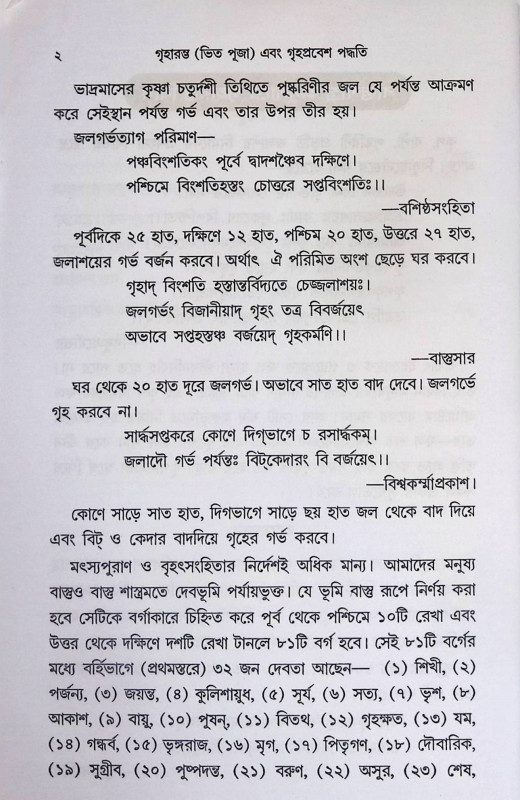 ২ গৃহারম্ভ (ভিত পূজা) এবং গৃহপ্রবেশ পদ্ধতি
ভাদ্রমাসের কৃষ্ণা চতুর্দশী তিথিতে পুষ্করিণীর জল যে পর্যন্ত আক্রমণ
করে সেইস্থান পর্যন্ত গর্ভ এবং তার উপর তীর হয়।
জলগর্ভত্যাগ পরিমাণ—
পঞ্চবিংশতিকং পূর্বে দ্বাদশঞ্চৈব দক্ষিণে।
পশ্চিমে বিংশতিহস্তং চোত্তরে সপ্তবিংশতিঃ।।
—বশিষ্ঠসংহিতা
পূর্বদিকে ২৫ হাত, দক্ষিণে ১২ হাত, পশ্চিম ২০ হাত, উত্তরে ২৭ হাত,
জলাশয়ের গর্ভ বর্জন করবে। অর্থাৎ ঐ পরিমিত অংশ ছেড়ে ঘর করবে।
গৃহাদ্ বিংশতি হস্তান্তর্বিদ্যতে চেজ্জলাশয়ঃ।
জলগর্ভং বিজানীয়াদ্ গৃহং তত্র বিবর্জয়েৎ
অভাবে সপ্তহস্তঞ্চ বর্জয়েদ্ গৃহকর্মণি।।
—বাস্তুসার
ঘর থেকে ২০ হাত দূরে জলগর্ভ। অভাবে সাত হাত বাদ দেবে। জলগর্ভে
গৃহ করবে না।
সার্দ্ধসপ্তকরে কোণে দিগ্‌ভাগে চ রসার্দ্ধকম্।
জলাদৌ গর্ভ পর্যন্তঃ বিট্‌কেদারং বি বর্জয়েৎ।।
—বিশ্বকর্ম্মাপ্রকাশ।
কোণে সাড়ে সাত হাত, দিগভাগে সাড়ে ছয় হাত জল থেকে বাদ দিয়ে
এবং বিট্ ও কেদার বাদদিয়ে গৃহের গর্ভ করবে।
মৎস্যপুরাণ ও বৃহৎসংহিতার নির্দেশই অধিক মান্য। আমাদের মনুষ্য
বাস্তুও বাস্তু শাস্ত্রমতে দেবভূমি পর্যায়ভুক্ত। যে ভূমি বাস্তু রূপে নির্ণয় করা
হবে সেটিকে বর্গাকারে চিহ্নিত করে পূর্ব থেকে পশ্চিমে ১০টি রেখা এবং
উত্তর থেকে দক্ষিণে দশটি রেখা টানলে ৮১টি বর্গ হবে। সেই ৮১টি বর্গের
মধ্যে বর্হিভাগে (প্রথমস্তরে) ৩২ জন দেবতা আছেন— (১) শিখী, (২)
পর্জন্য, (৩) জয়ন্ত, (৪) কুলিশায়ুধ, (৫) সূর্য, (৬) সত্য, (৭) ভৃশ, (৮)
আকাশ, (৯) বায়ু, (১০) পূষন্, (১১) বিতথ, (১২) গৃহক্ষত, (১৩) যম,
(১৪) গন্ধর্ব, (১৫) ভৃঙ্গরাজ, (১৬) মৃগ, (১৭) পিতৃগণ, (১৮) দৌবারিক,
(১৯) সুগ্রীব, (২০) পুষ্পদন্ত, (২১) বরুণ, (২২) অসুর, (২৩) শেষ,